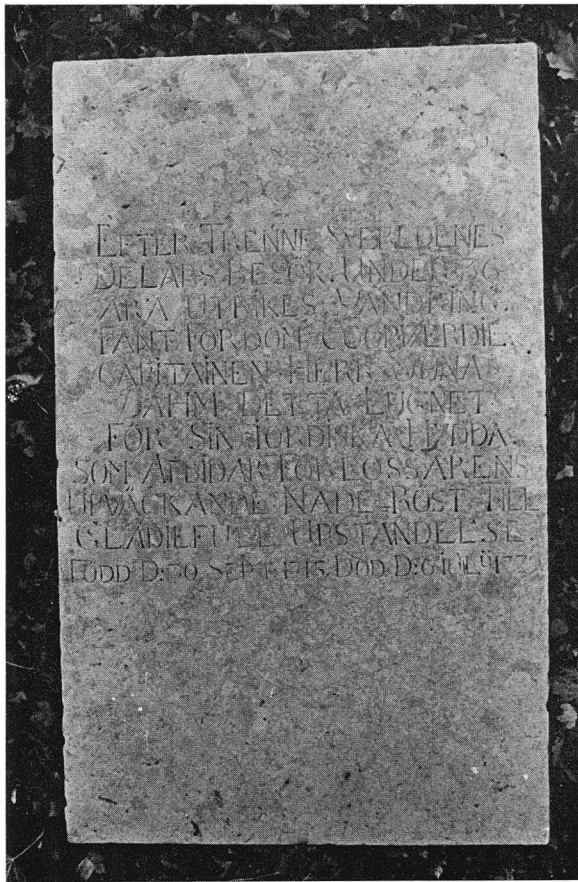 EFTER TRENNE WERLDENES
DELARS BESÖK, UNDER 36
ÅRA UTRIKES VANDRING,
FANT FORDOM COOPVÆRDIE,
CAPITAINEN HERR JONAS
DAHM DETTA LUGNET
FÖR SIN JORDISKA HYDDA.
SOM AFBIDAR FÖRLOSSARENS
UPVÄCKANDE NÅDE-RÖST TILL
GLÄDIEFULL UPSTÅNDELSE.
FÖDD D: 30 SEPT. DÖD D: 6 IULII